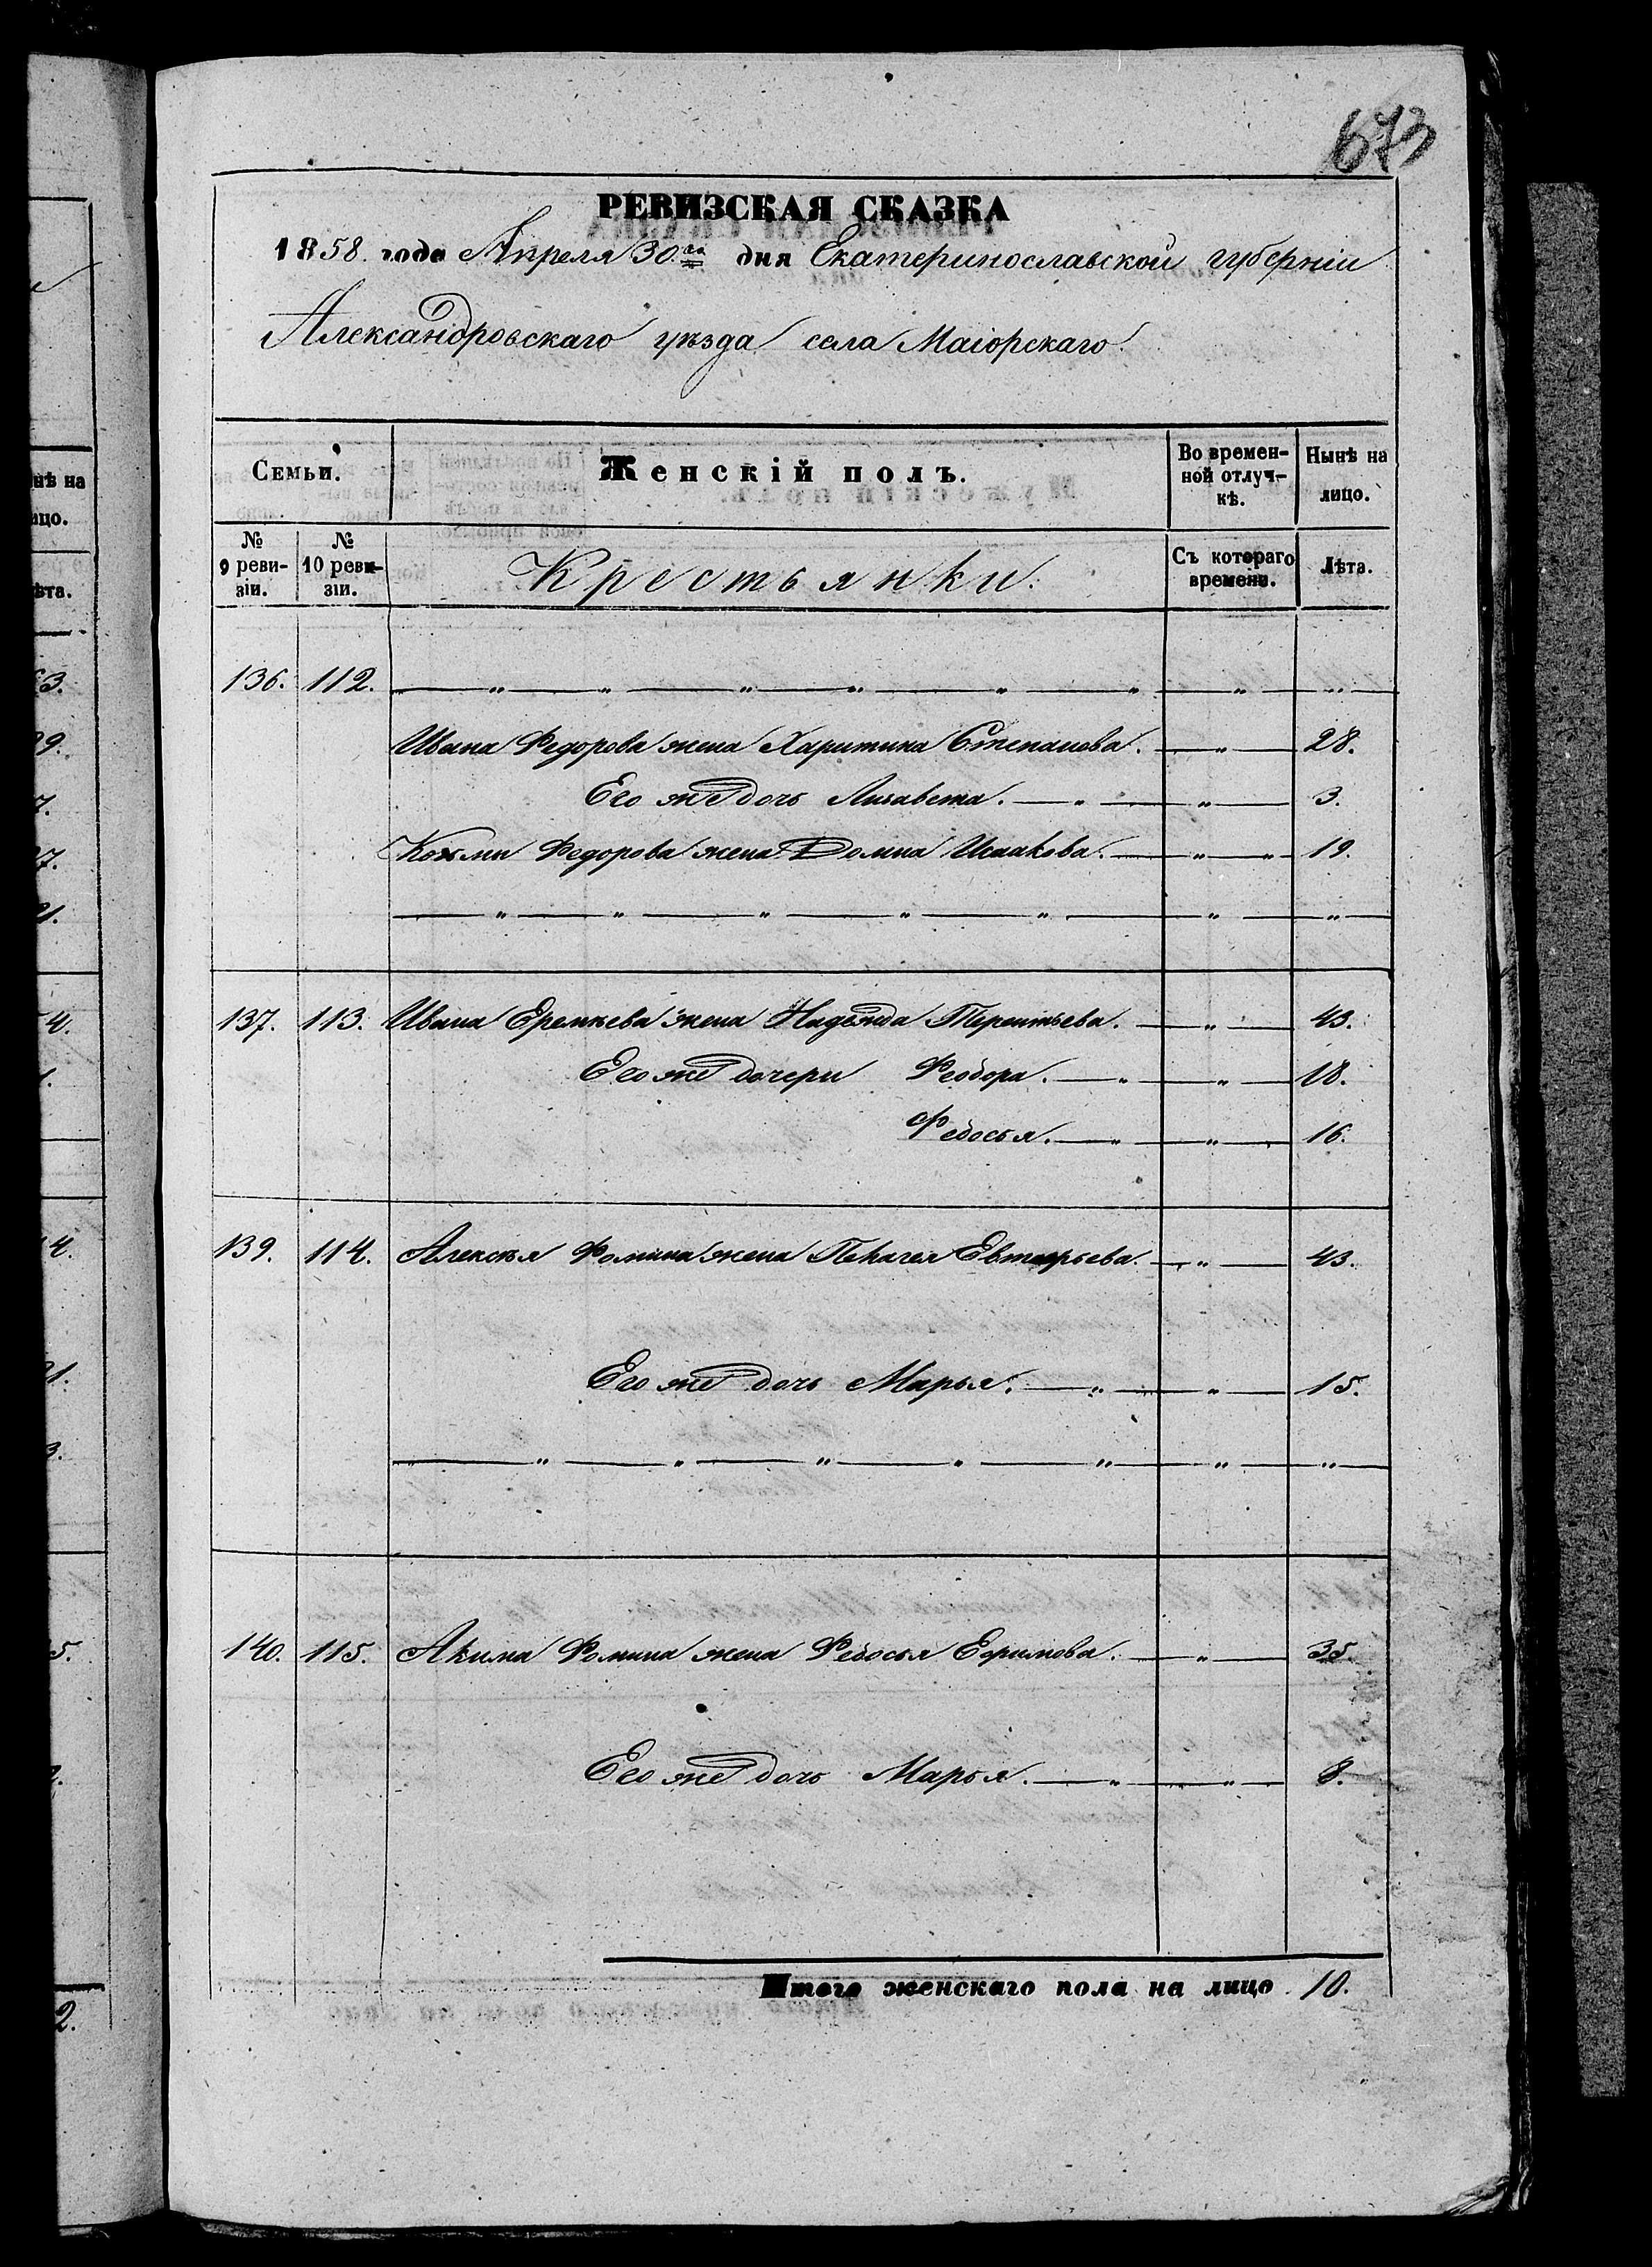 673
РЕВИЗСКАЯ СКАЗКА
1858. года Апреля 30го дня Екатеринославской губерніи
Александровскаго уѣзда села Маіорскаго.
Семьи. Женскій полъ. Во времен-ной отлуч-кѣ. Нынѣ на лицо.
№ 9 реви-зіи. № 10 реви-зіи. Крестьянки. Съ котораго времени. Лѣта.
136. 112. — " — " — " — " — " — " — " — "
Ивана Федорова жена Харитина Степанова. — " — 28.
Его же дочь Лизавета. — " — " — 3.
Козьми Федорова жена Домна Исаакова. — " — " — 19.
— " — " — " — " — " — " — "
137. 113. Ивана Еремѣева жена Надежда Терентьева. — " — 43.
Его же дочери Феодора. — " — " — 18.
Федосья. — " — " — 16.
139. 114. Алексѣя Фомина жена Пелагея — " — 43.
Его же дочь Марья. — " — " — 15.
— " — " — " — " — " — " — "
140. 115. Акима Фомина жена Федосья Ефимова. — " — 35.
Его же дочь Марья. — " — " — 8.
Итого женскаго пола на лицо 10.